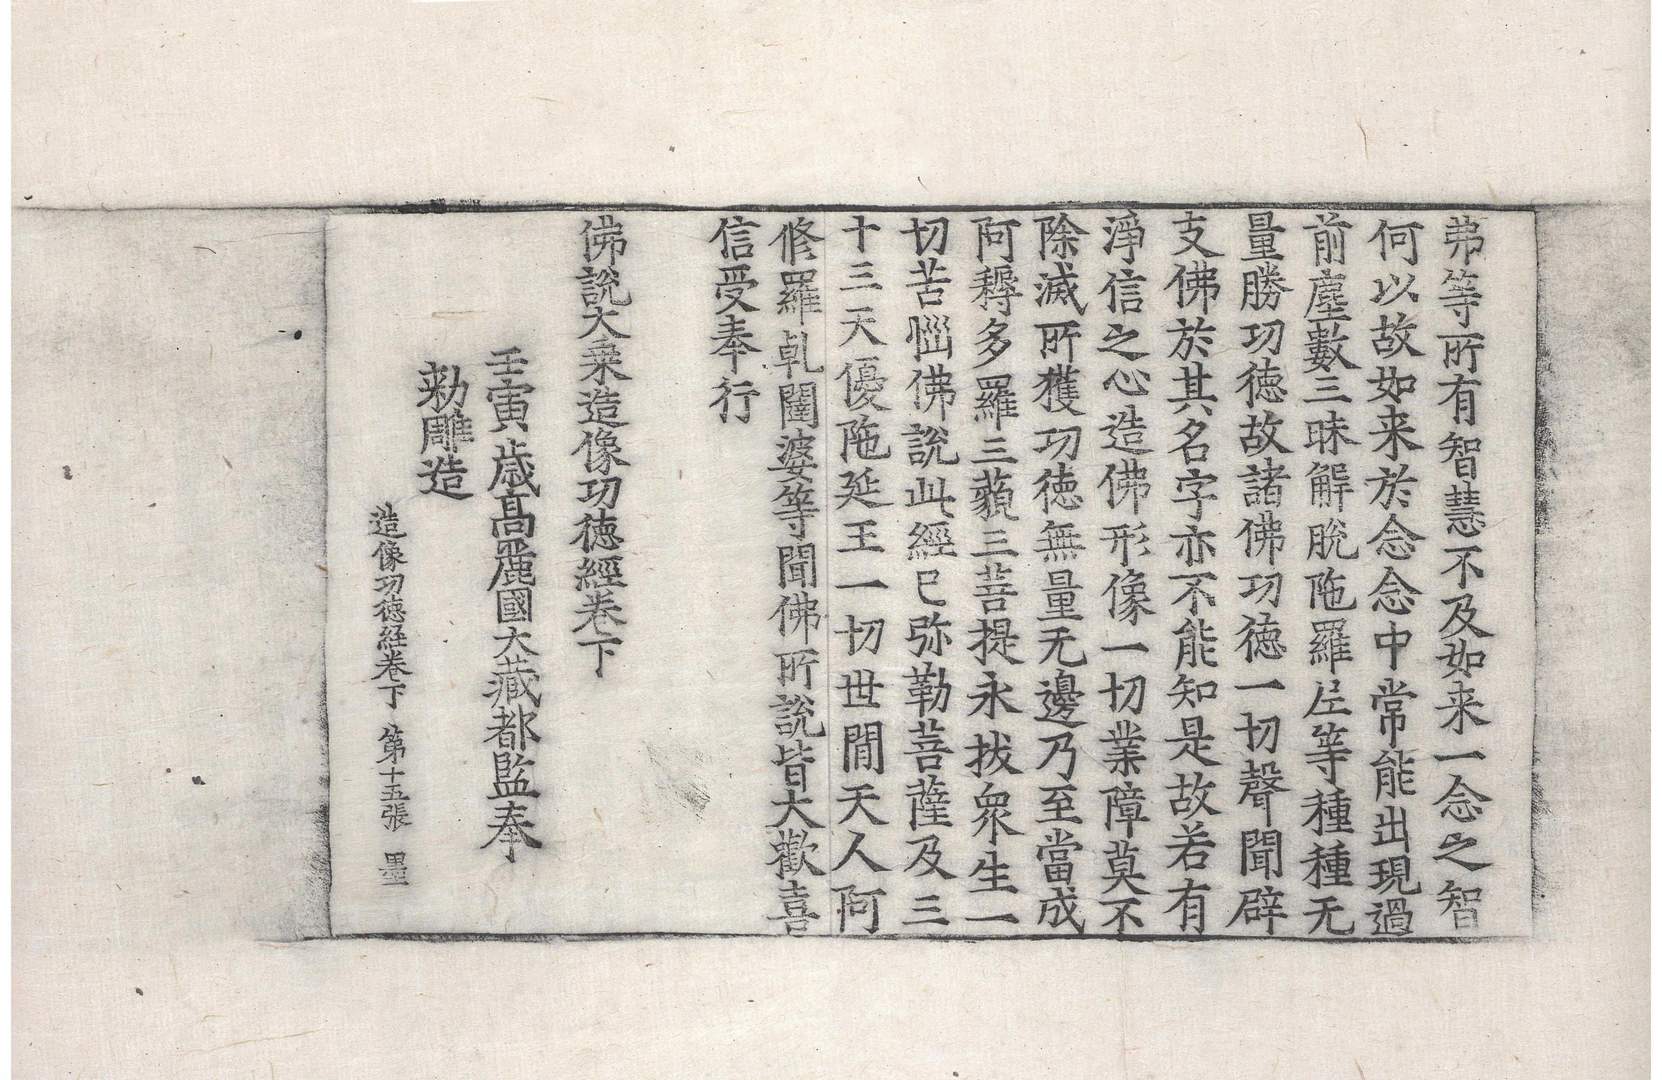 弗等所有智慧不及如来一念之智
何以故如来於念念中常能出現過
前塵數三昧解脫陁羅𡊮等種種无
量勝功徳故諸佛功徳一切聲聞辟
支佛於其名字亦不能知是故若有
淨信之心造佛形像一切業障莫不
除滅所獲功徳無量无邊乃至當成
阿耨多羅三藐三菩提永拔衆生一
切苦惱佛說此經已弥勒菩薩及三
十三天優陁延王一切世間天人阿
修羅乹闥婆等聞佛所說皆大歡喜
信受奉行
佛說大乗造像功徳經卷下
壬寅歳髙麗國大藏都監奉
勑雕造
造像功徳経卷下 第十五張 墨